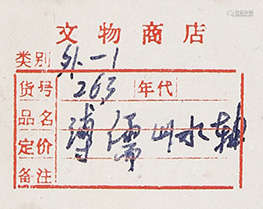 文物商店
类别 外-1
货号 263 年代
品名 溥儒山水轴
定价
备注